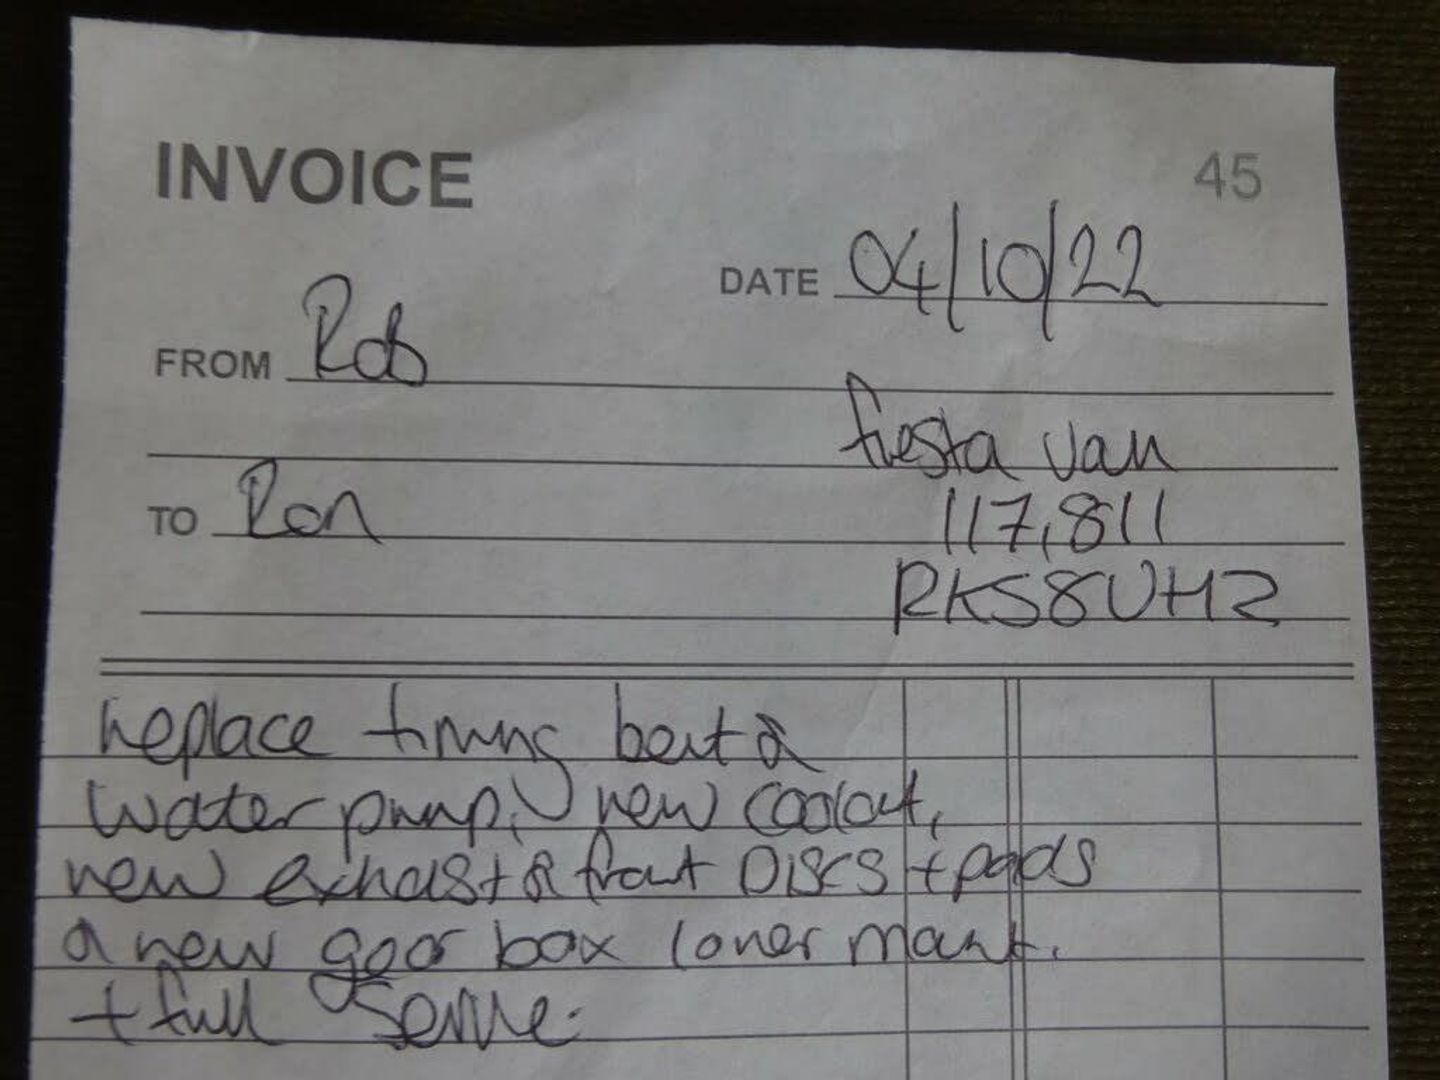 INVOICE 45
DATE 04/10/22
FROM Rob
fiesta van
TO Ron
117,811
RK58UHZ
replace timing belt &
water pump, new coolant,
new exhaust & front DISCS + pads
& new gear box lower mount.
+ full service.